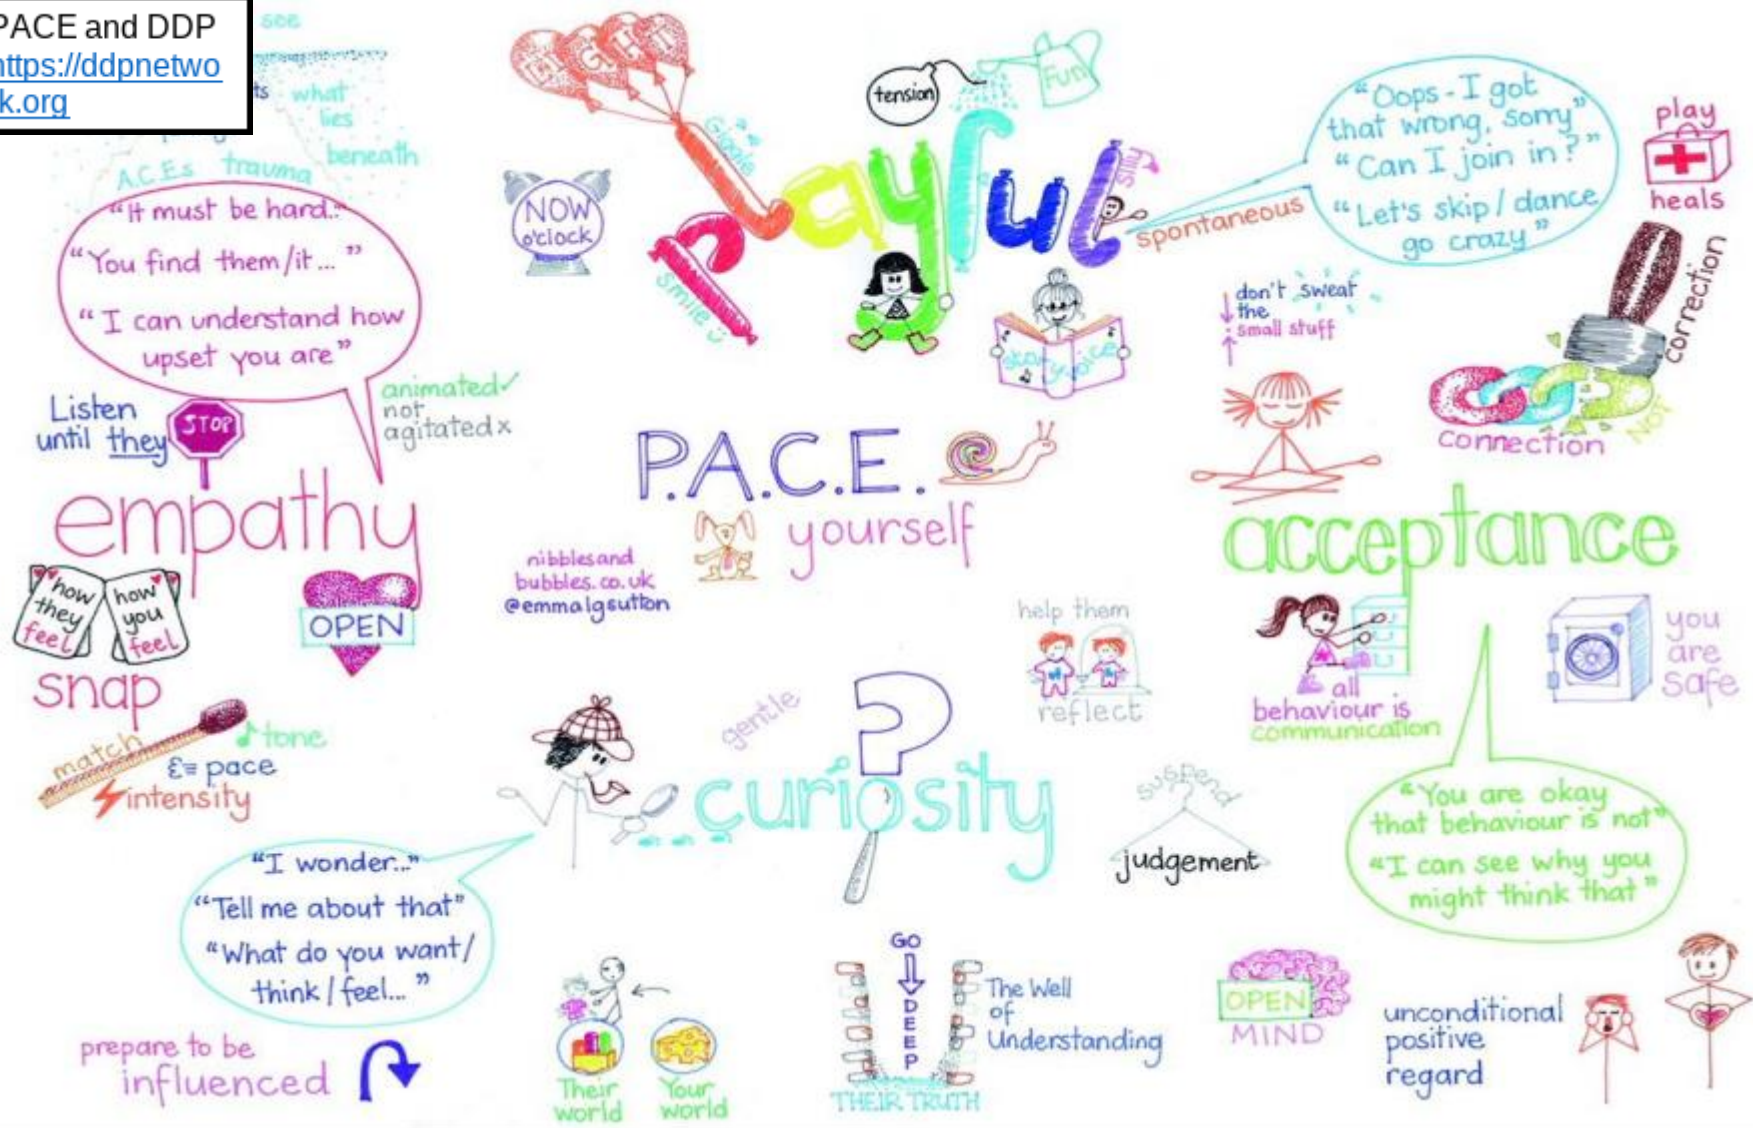 PACE and DDP
https://ddpnetwo
k.org
see
what
lies
beneath
A.C.Es trauma
"It must be hard.."
"You find them/it... "
"I can understand how
upset you are"
animated✓
not
agitated x
Listen
until they
STOP
empathy
how
they
feel
how
you
feel
snap
OPEN
match
tone
pace
intensity
LIGHT
Giggle
tension
Fun
NOW
o'clock
playful
smile
silly
story voice
spontaneous
"Oops - I got
that wrong, sorry"
"Can I join in?"
"Let's skip / dance
go crazy"
play
heals
don't sweat
the
small stuff
correction
connection
NOT
P.A.C.E.
yourself
nibblesand
bubbles.co.uk
@emmalgsutton
acceptance
help them
reflect
all
behaviour is
communication
you
are
safe
"You are okay
that behaviour is not"
"I can see why you
might think that"
gentle
?
curiosity
suspend
judgement
"I wonder..."
"Tell me about that"
"What do you want/
think / feel... "
prepare to be
influenced
Their
world
Your
world
GO
DEEP
The Well
of
Understanding
THEIR TRUTH
OPEN
MIND
unconditional
positive
regard